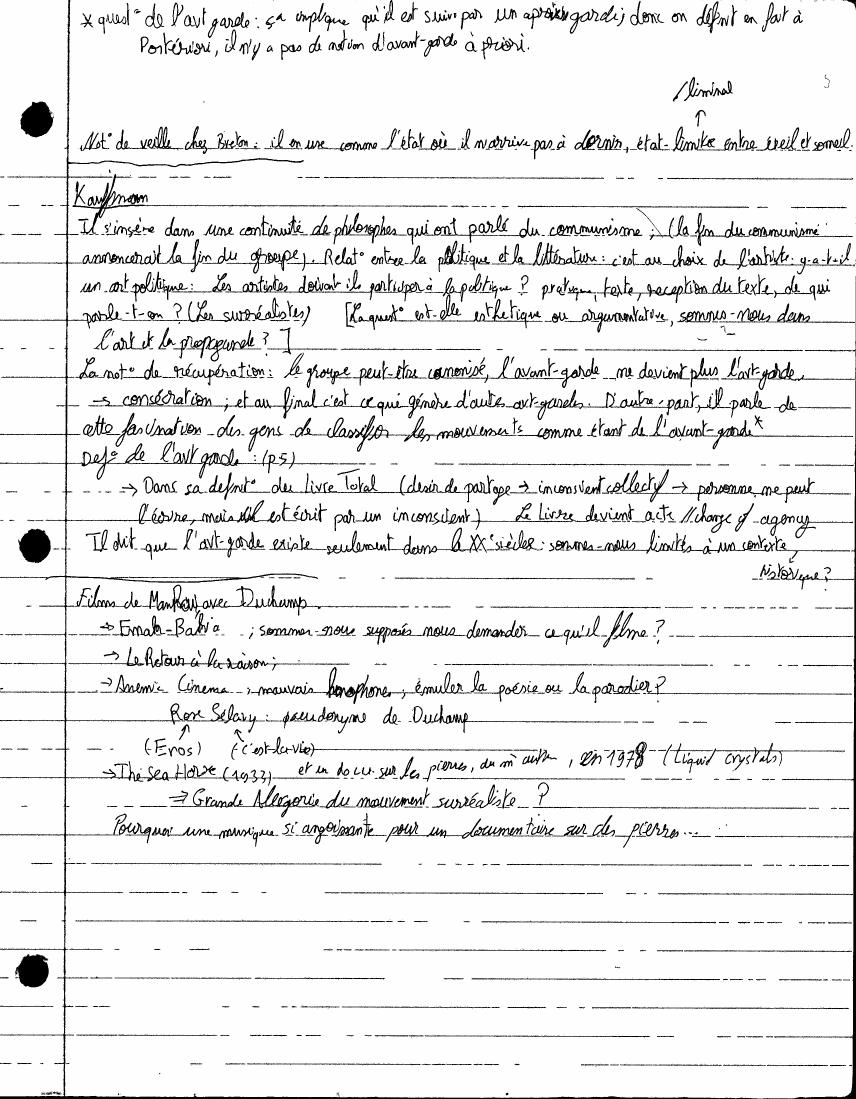 * quest° de l'avt garde : ça implique qu'il est suivi par un après gardi; donc on définit en fait à
Postériori, il n'y a pas de notion d'avant-garde à priori.
5
liminal
Not° de veille chez Breton : il en use comme l'état où il n'arrive pas à dormir, état-limite entre éveil et someil.
Kauffmann
Il s'insère dans une continuité de philosophes qui ont parlé du communisme ; (la fin du communisme
annoncerait la fin du groupe). Relat° entre la politique et la littérature : c'est au choix de l'artiste : y-a-t-il
un art politique : Les artistes doivent ils participer à la politique ? pratique, texte, reception du texte, de qui
parle-t-on ? (Les surréalistes) [La quest° est-elle esthetique ou argumentative, sommes-nous dans
l'art et la propagande ? ]
La not° de récupération : le groupe peut-être canonisé, l'avant-garde ne devient plus l'avt-garde
→ consécration ; et au final c'est ce qui génère d'autres avt-gardes. D'autre-part, il parle de
cette fascination des gens de classifier les mouvements comme étant de l'avant-garde*
Def° de l'avt garde : (p5)
→ Dans sa definit° du Livre Total (desir de partage → inconsient collectif → personne ne peut
l'écrire, mais il est écrit par un inconscient) Le Livre devient acts // change of agency
Il dit que l'avt-garde existe seulement dans la XX° siècles : sommes-nous limités à un contexte
historique ?
Films de ManRay avec Duchamp
→ Emak-Bakia ; sommes-nous supposés nous demander ce qu'il filme ?
→ Le Retour à la raison ;
→ Anemic Cinema ; mauvais homophones ; émuler la poésie ou la parodier ?
Rose Sélavy : pseudonyme de Duchamp
(Eros) (c'est-la-vie)
→ The Sea Horse (1933) et un docu sur les pierres, du m̂ auteur, en 1978 (Liquid crystals)
⇒ Grande Allegorie du mouvement surréaliste ?
Pourquoi une musique si angoissante pour un documentaire sur des pierres...